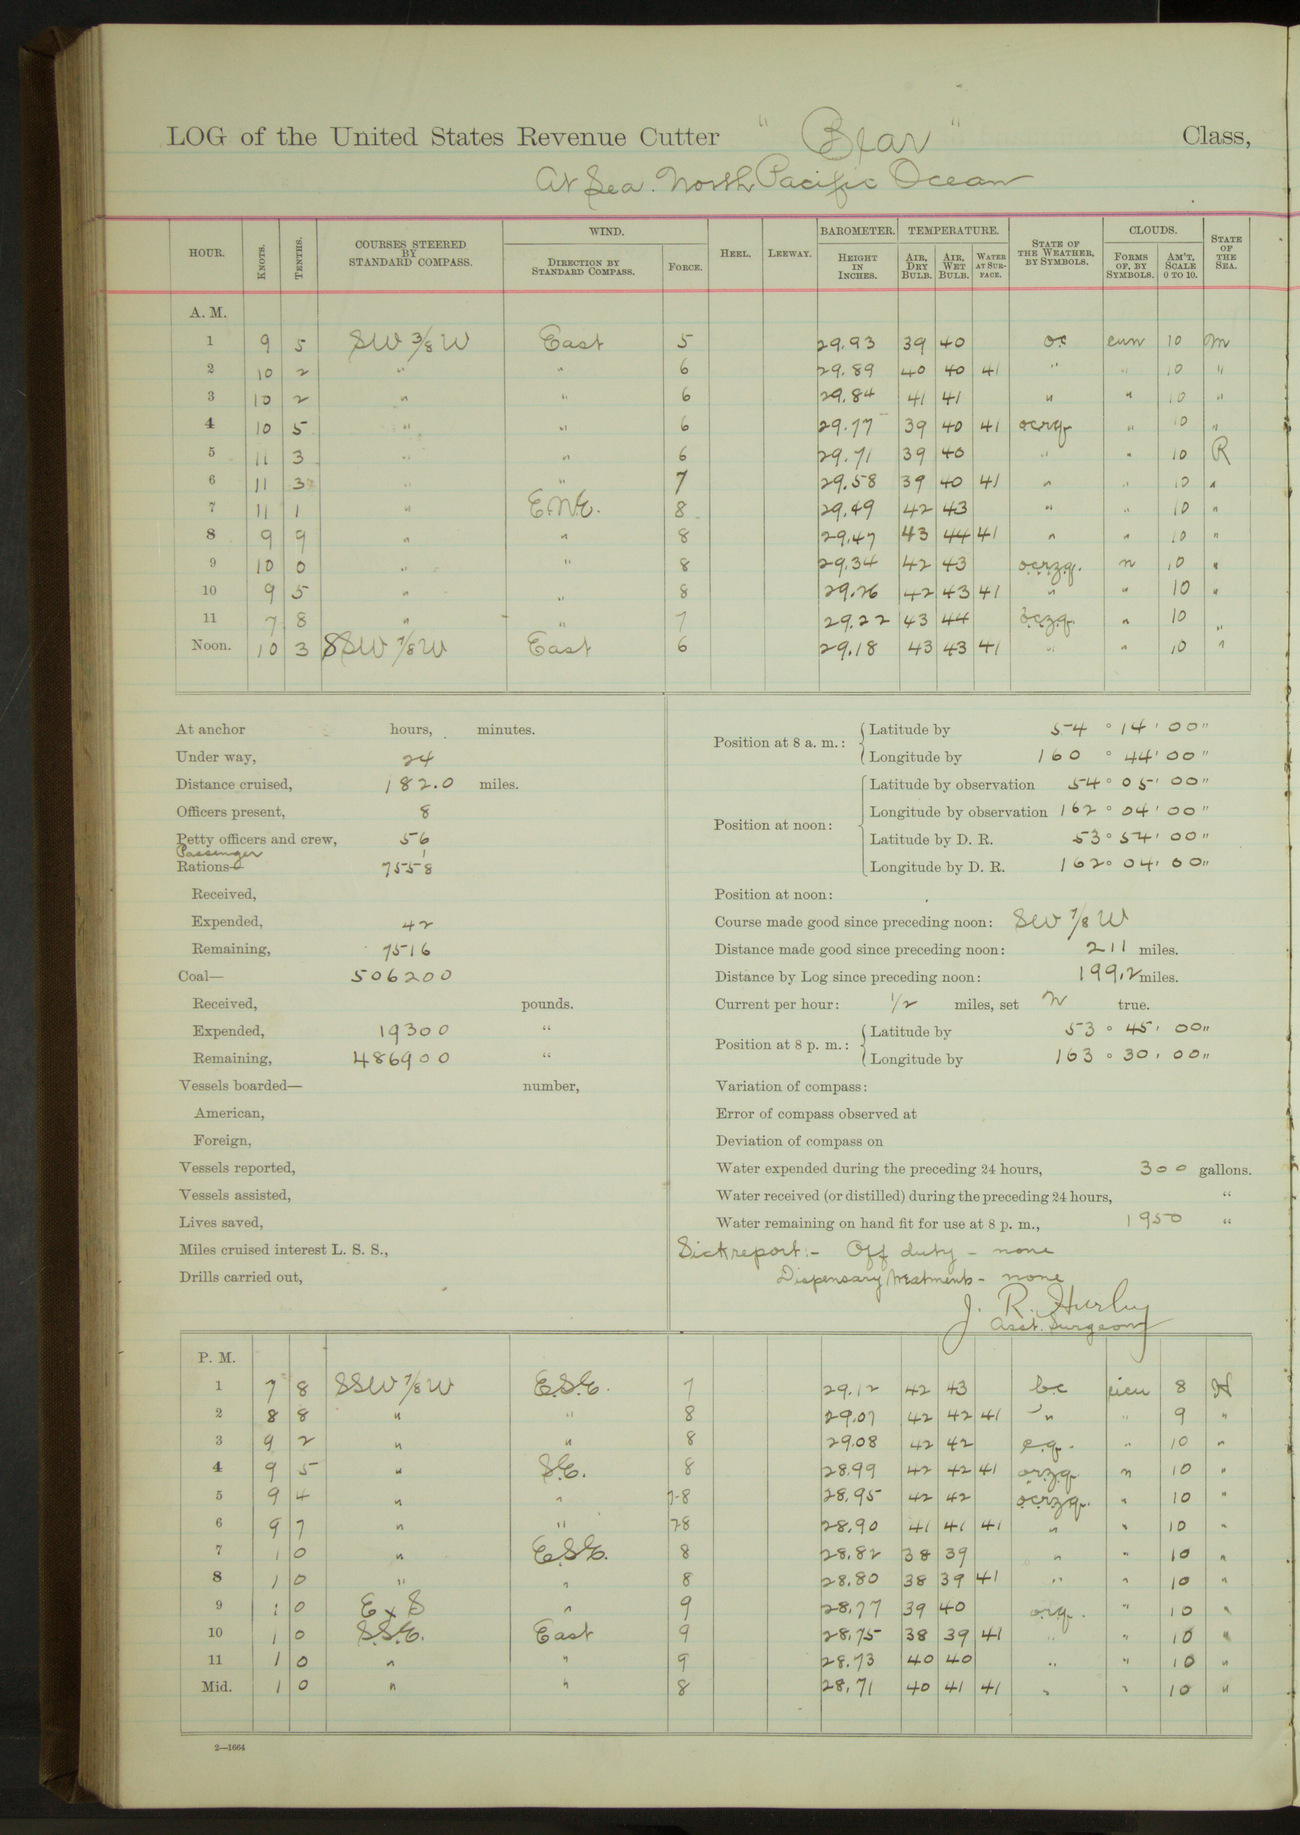 LOG of the United States Revenue Cutter " Bear " Class,
At Sea. North Pacific Ocean
HOUR. KNOTS. TENTHS. COURSES STEERED BY STANDARD COMPASS. WIND. DIRECTION BY STANDARD COMPASS. FORCE. HEEL. LEEWAY. BAROMETER. HEIGHT IN INCHES. TEMPERATURE. AIR, DRY BULB. AIR, WET BULB. WATER AT SURFACE. STATE OF THE WEATHER, BY SYMBOLS. CLOUDS. FORMS OF, BY SYMBOLS. AM'T, SCALE 0 TO 10. STATE OF THE SEA.
A. M.
1 9 5 SW 3/8 W East 5 29.93 39 40 oc cun 10 m
2 10 2 " " 6 29.89 40 40 41 " " 10 "
3 10 2 " " 6 29.84 41 41 " " 10 "
4 10 5 " " 6 29.77 39 40 41 ocrq " 10 "
5 11 3 " " 6 29.71 39 40 " " 10 R
6 11 3 " " 7 29.58 39 40 41 " " 10 "
7 11 1 " E.N.E. 8 29.49 42 43 " " 10 "
8 9 9 " " 8 29.47 43 44 41 " " 10 "
9 10 0 " " 8 29.34 42 43 o.c.r.z.q. n 10 "
10 9 5 " " 8 29.26 42 43 41 " " 10 "
11 7 8 " " 7 29.22 43 44 o.c.z.q. " 10 "
Noon. 10 3 SSW 7/8 W East 6 29.18 43 43 41 " " 10 "
At anchor hours, minutes.
Under way, 24
Distance cruised, 182.0 miles.
Officers present, 8
Petty officers and crew, 56
Passenger 1
Rations— 7558
Received,
Expended, 42
Remaining, 7516
Coal— 506200
Received, pounds.
Expended, 19300 "
Remaining, 486900 "
Vessels boarded— number,
American,
Foreign,
Vessels reported,
Vessels assisted,
Lives saved,
Miles cruised interest L. S. S.,
Drills carried out,
Position at 8 a. m.: Latitude by 54 ° 14 ' 00 "
Longitude by 160 ° 44 ' 00 "
Position at noon: Latitude by observation 54 ° 05 ' 00 "
Longitude by observation 162 ° 04 ' 00 "
Latitude by D. R. 53 ° 54 ' 00 "
Longitude by D. R. 162 ° 04 ' 00 "
Position at noon:
Course made good since preceding noon: SW 7/8 W
Distance made good since preceding noon: 211 miles.
Distance by Log since preceding noon: 199.2 miles.
Current per hour: 1/2 miles, set N true.
Position at 8 p. m.: Latitude by 53 ° 45 ' 00 "
Longitude by 163 ° 30 ' 00 "
Variation of compass:
Error of compass observed at
Deviation of compass on
Water expended during the preceding 24 hours, 300 gallons.
Water received (or distilled) during the preceding 24 hours, "
Water remaining on hand fit for use at 8 p. m., 1950 "
Sick report:- Off duty - none
Dispensary treatments - none
J. R. Hurley
Asst. Surgeon
P. M.
1 7 8 SSW 7/8 W E.S.E. 7 29.12 42 43 b.c cicu 8 H
2 8 8 " " 8 29.07 42 42 41 " " 9 "
3 9 2 " " 8 29.08 42 42 c.q. " 10 "
4 9 5 " S.E. 8 28.99 42 42 41 orzq n 10 "
5 9 4 " " 7-8 28.95 42 42 o.c.r.z.q. " 10 "
6 9 7 " " 7-8 28.90 41 41 41 " " 10 "
7 1 0 " E.S.E. 8 28.82 38 39 " " 10 "
8 1 0 " " 8 28.80 38 39 41 " " 10 "
9 1 0 E x S " 9 28.77 39 40 o.r.q. " 10 "
10 1 0 S.S.E. East 9 28.75 38 39 41 " " 10 "
11 1 0 " " 9 28.73 40 40 " " 10 "
Mid. 1 0 " " 8 28.71 40 41 41 " " 10 "
2—1664